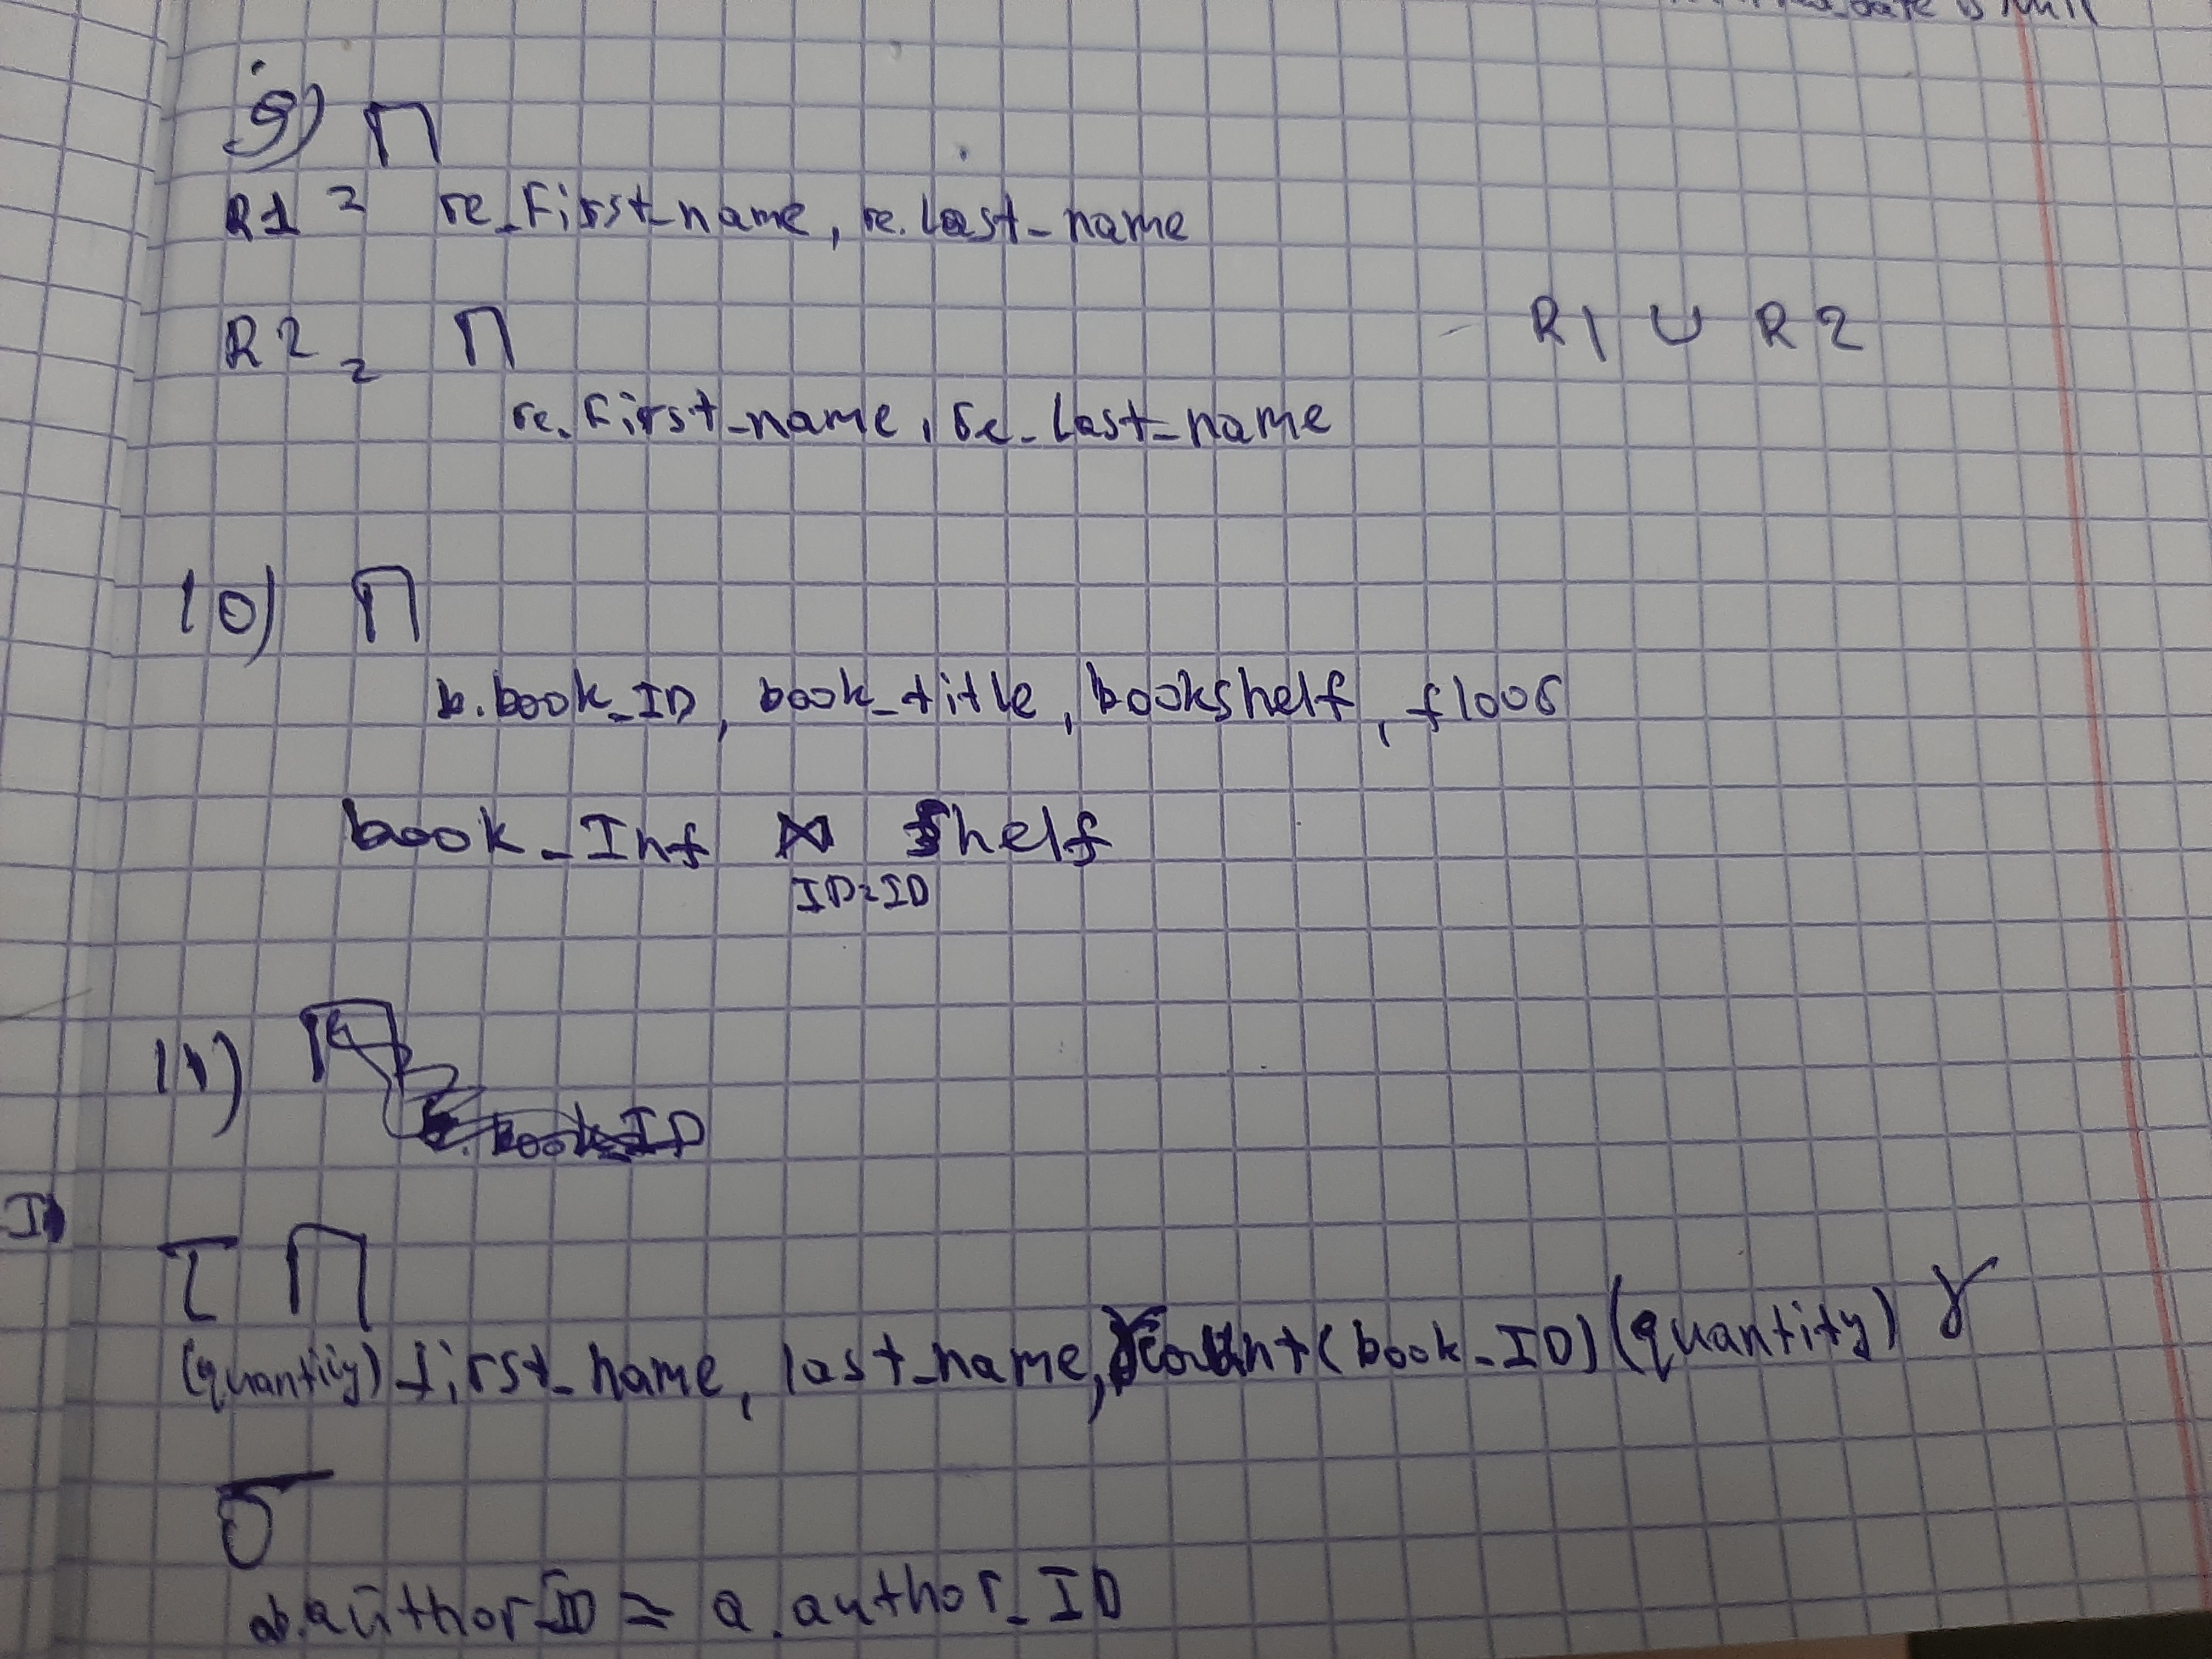 9) Π
R1 = re_First_name, re.last_name
R2 = Π R1 ∪ R2
re.First_name, re_last_name
10) Π
b.book_ID, book_title, bookshelf, floor
book_Inf ⋈ Shelf
ID=ID
11)
book_ID
τ Π
(quantity) first_name, last_name, Count(book_ID)(quantity) γ
σ
ab.author_ID = a.author_ID